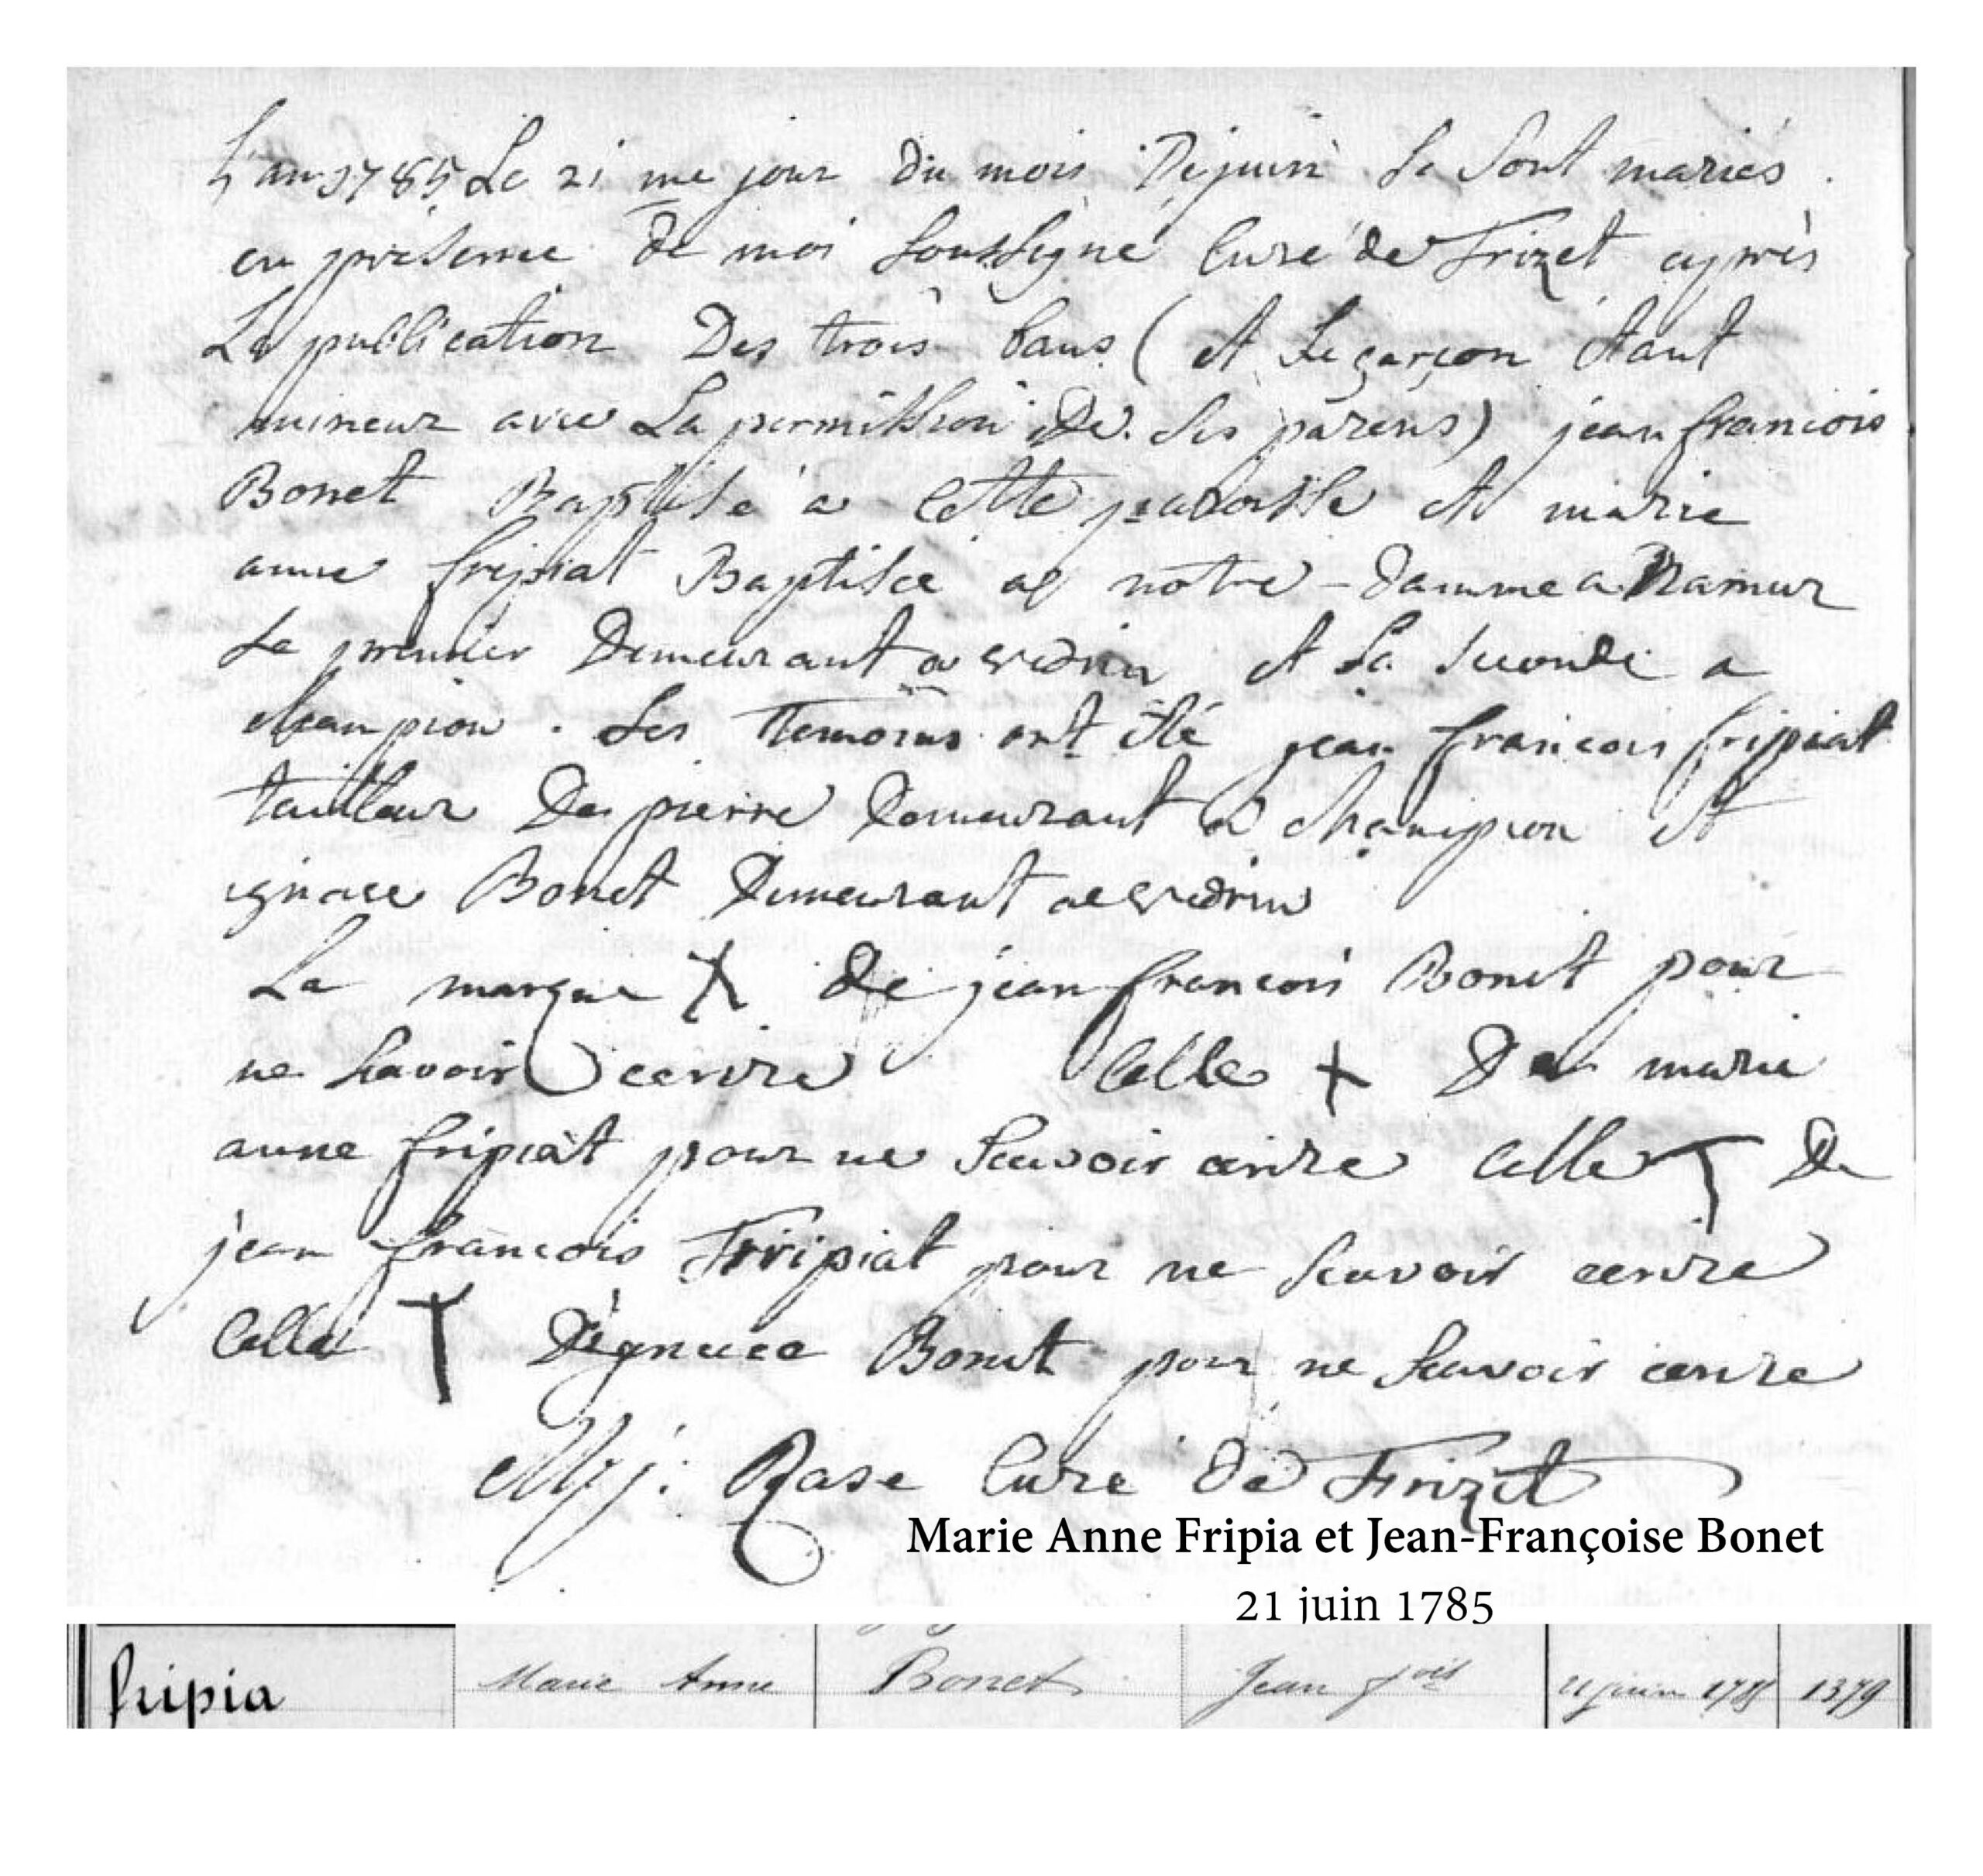 L'an 1785 Le 21 me jour du mois De juin se sont mariés
en présence de moi soussigné Curé de Frizet après
La publication Des trois bans (et le garçon étant
mineur avec La permission De ses parens) jean francois
Bonet Baptisé a cette paroisse et marie
anne fripiat Baptisée a notre-damme a Namur
Le premier Demeurant a vedrin et La seconde a
champion. Les temoins ont été jean francois fripiat
tailleur De pierre Demeurant a champion et
ignace Bonet Demeurant a vedrin
La marque X De jean francois Bonet pour
ne scavoir ecrire Celle + De marie
anne fripiat pour ne scavoir ecrire celle + De
jean francois Fripiat pour ne scavoir ecrire
Celle + D'ignace Bonet pour ne scavoir ecrire
j: Rase Curé de Frizet
Marie Anne Fripia et Jean-Françoise Bonet
21 juin 1785
fripia Marie Anne Bonet Jean fois 21 juin 1785 1379